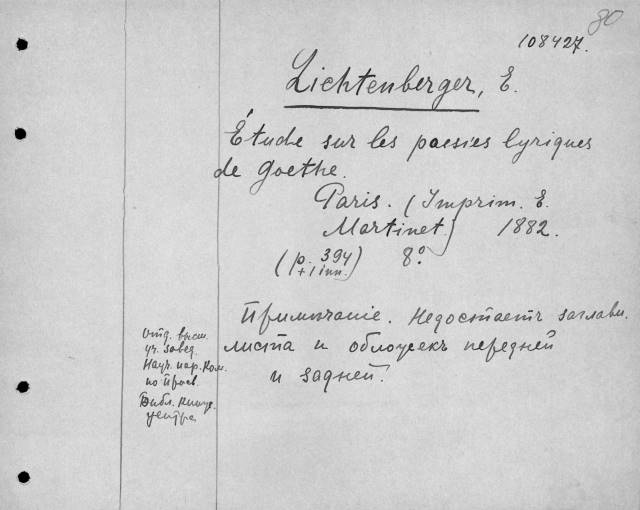 80
108427.
Lichtenberger, E.
Étude sur les poesies lyriques
de Goethe.
Paris. (Imprim. E.
Martinet) 1882.
(p. 394 8º.
+ 1 inn.)
Примѣчаніе. Недостаетъ заглавн.
листа и обложекъ передней
и задней.
Отд. высш.
уч. завед.
Науч. нар. ком.
по просв.
Библ. книж.
центра